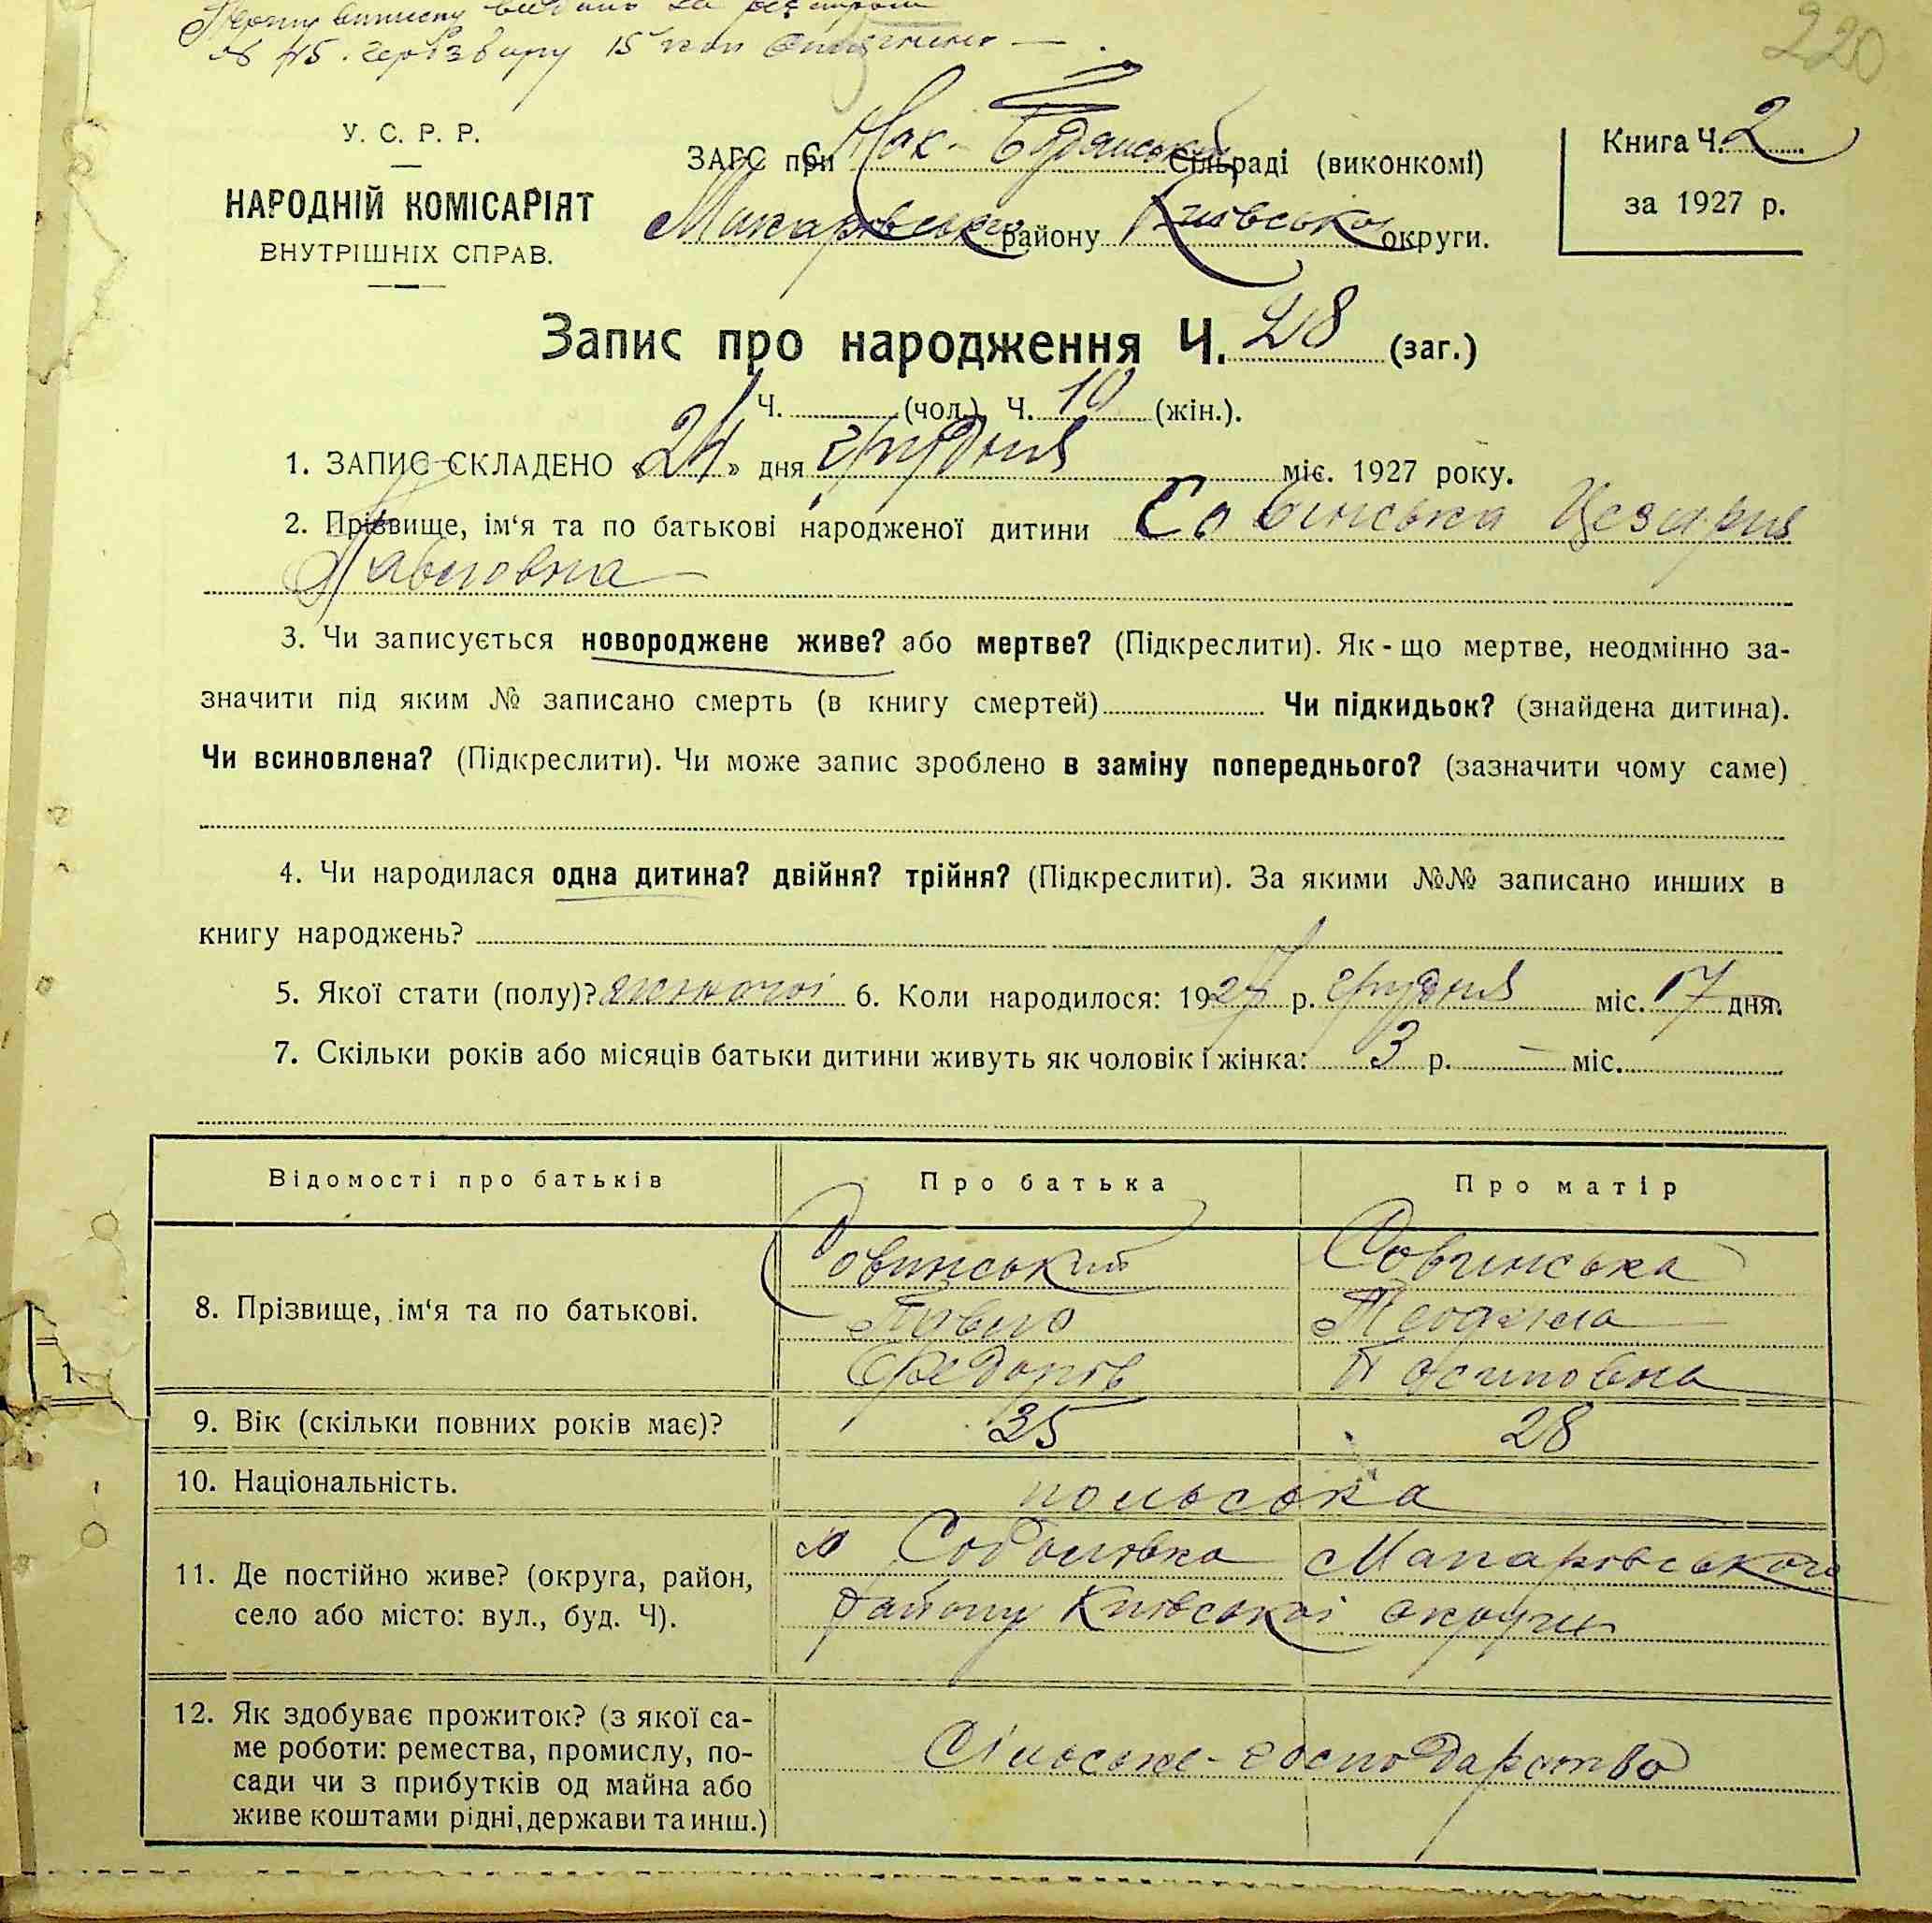 220
№ 45.
У. С. Р. Р.
НАРОДНІЙ КОМІСАРІЯТ
ВНУТРІШНІХ СПРАВ.
ЗАГС при Мак-Будянській Сільраді (виконкомі)
Макарівського району Київської округи.
Книга Ч. 2
за 1927 р.
Запис про народження Ч. 28 (заг.)
Ч. (чол.) Ч. 10 (жін.).
1. ЗАПИС СКЛАДЕНО «24» дня грудня міс. 1927 року.
2. Прізвище, ім‘я та по батькові народженої дитини Совінська Цезарія
Павловна
3. Чи записується новороджене живе? або мертве? (Підкреслити). Як-що мертве, неодмінно за-
значити під яким № записано смерть (в книгу смертей) Чи підкидьок? (знайдена дитина).
Чи всиновлена? (Підкреслити). Чи може запис зроблено в заміну попереднього? (зазначити чому саме)
4. Чи народилася одна дитина? двійня? трійня? (Підкреслити). За якими №№ записано инших в
книгу народжень?
5. Якої стати (полу)? жіночої 6. Коли народилося: 1927 р. грудня міс. 17 дня.
7. Скільки років або місяців батьки дитини живуть як чоловік і жінка: 3 р. — міс.
Відомості про батьків Про батька Про матір
8. Прізвище, ім‘я та по батькові.
Совинський Совинська
Павло
Федорів Йосиповна
9. Вік (скільки повних років має)? 35 28
10. Національність. польська
11. Де постійно живе? (округа, район,
село або місто: вул., буд. Ч).
Соболівка Макарівського
району Київської округи
12. Як здобуває прожиток? (з якої са-
ме роботи: ремества, промислу, по-
сади чи з прибутків од майна або
живе коштами рідні, держави та инш.)
Сільське-господарство
1.